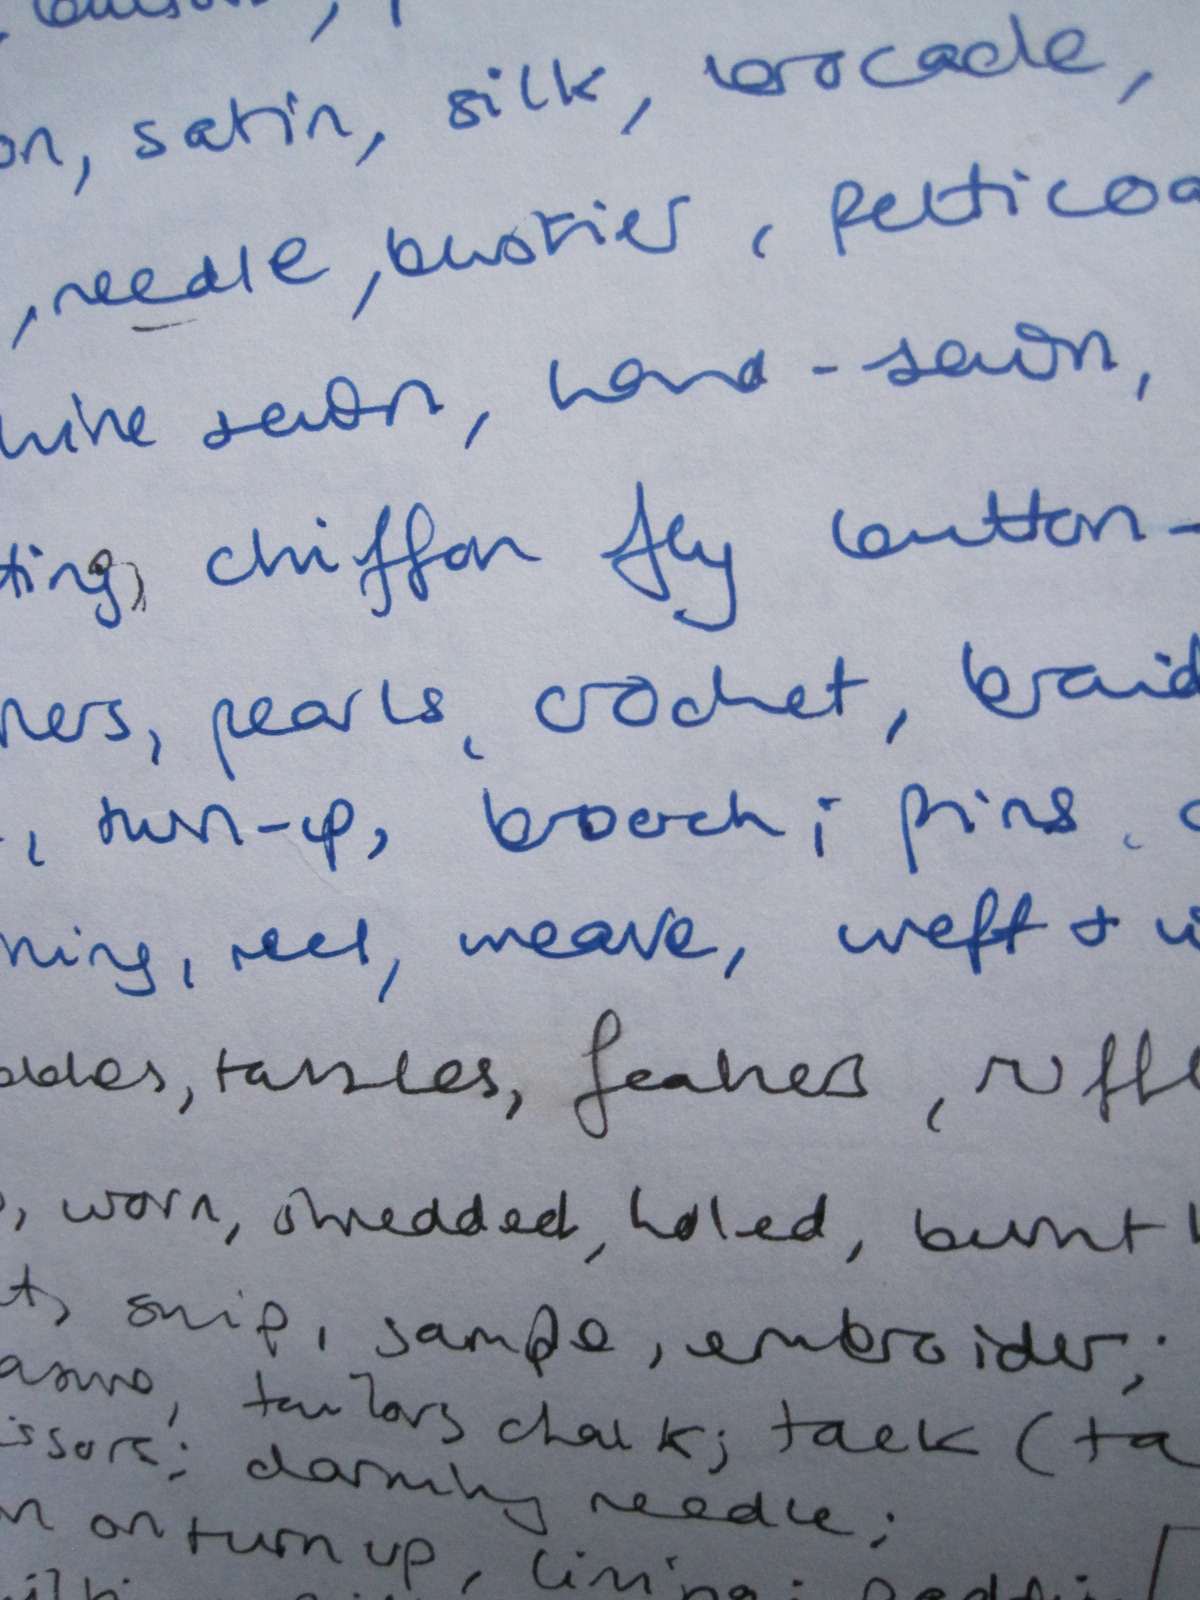 on, satin, silk, brocade,
, needle, bustier, petticoa
hine sewn, hand-sewn,
ting, chiffon fly button-
ners, pearls, crochet, braid
, turn-up, brooch; pins,
ning, reel, weave, weft &
tassles, feathers, ruffl
, worn, shredded, holed, burnt
t, snip, sample, embroider;
tailors chalk; tack (ta
issors; darning needle;
on turn up, lining;